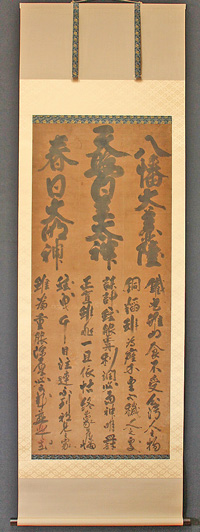 八幡大菩薩
天照皇太神
春日大明神
鐵丸雖為食不受心穢人物
銅焔雖為座不至心穢人處
謀計雖眼前利潤必神明罰
正直雖非一旦依怙終蒙日月憐
雖曳千日注連不到邪見家
雖為重服深厚